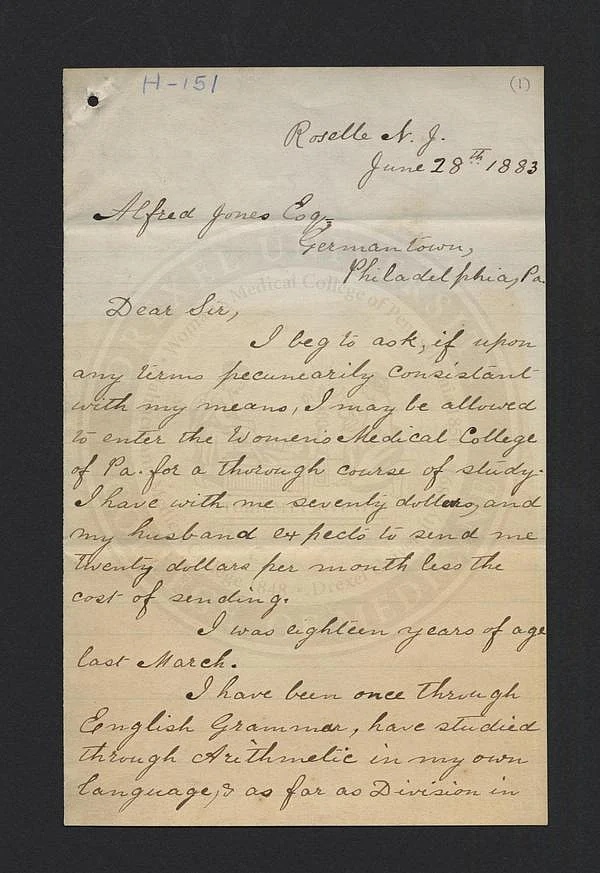 H-151
(1)
Roselle N. J.
June 28th 1883
Alfred Jones Esq,
Germantown,
Philadelphia, Pa.
Dear Sir,
I beg to ask, if upon
any terms pecuniarily consistant
with my means, I may be allowed
to enter the Women's Medical College
of Pa. for a thorough course of study.
I have with me seventy dollers, and
my husband expects to send me
twenty dollars per month less the
cost of sending.
I was eighteen years of age
last March.
I have been once through
English Grammar, have studied
through Arithmetic in my own
language, & as far as Division in